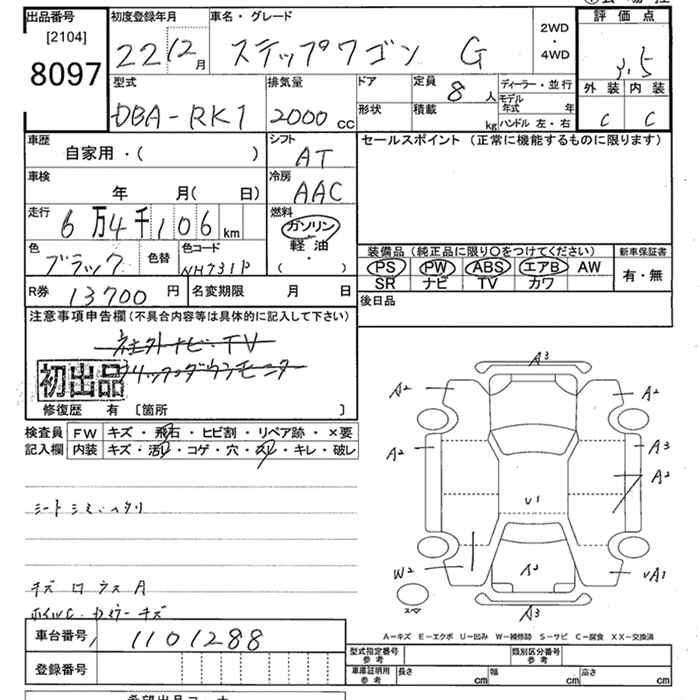 出品番号 初度登録年月 車名・グレード 評価点
[2104]
8097
22 12月 ステップワゴン G 2WD・4WD 3.5
型式 排気量 ドア 定員 8人 ディーラー・並行 外装 内装
DBA-RK1 2000cc 形状 積載 kg モデル年式 年 C C
ハンドル 左・右
車歴 シフト セールスポイント (正常に機能するものに限ります)
自家用・( ) AT
車検 冷房
年 月( 日) AAC
走行 燃料
6万4千106km ガソリン
軽油
・
( )
色 色替 色コード 装備品 (純正品に限り○をつけてください) 新車保証書
ブラック NH731P PS PW ABS エアB AW 有・無
SR ナビ TV カワ
R券 13700円 名変期限 月 日 後日品
注意事項申告欄 (不具合内容等は具体的に記入して下さい)
社外ナビ・TV
フリップダウンモニター
初出品
修復歴 有 [箇所 ]
検査員 FW キズ・飛石・ヒビ割・リペア跡・×要
記入欄 内装 キズ・汚レ・コゲ・穴・スレ・キレ・破レ
A3
A2 A2
A2 A3
A2
U1
W2 A2 UA1
スペア
A3
キズ
A－キズ E－エクボ U－凹み W－補修跡 S－サビ C－腐食 XX－交換済
車台番号 1101288
型式指定番号 参考 類別区分番号 参考
登録番号 車庫証明用 参考 長さ cm 幅 cm 高さ cm
希望出品コーナー